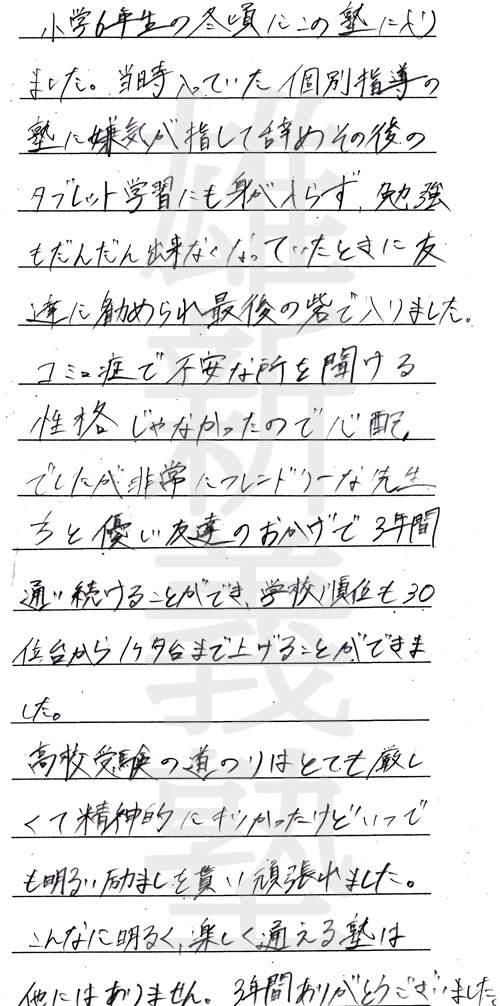 小学6年生の冬頃にこの塾に入り
ました。当時入っていた個別指導の
塾に嫌気が指して辞めその後の
タブレット学習にも身が入らず、勉強
もだんだん出来なくなっていたときに友
達に勧められ最後の砦で入りました。
コミュ症で不安な所を聞ける
性格じゃなかったので心配
でしたが非常にフレンドリーな先生
方と優しい友達のおかげで3年間
通い続けることができ、学校順位も30
位台から1ケタ台まで上げることができま
した。
高校受験の道のりはとても厳し
くて精神的にキツかったけどいつで
も明るい励ましを貰い頑張れました。
こんなに明るく、楽しく通える塾は
他にはありません。3年間ありがとうございました。
雄新義塾